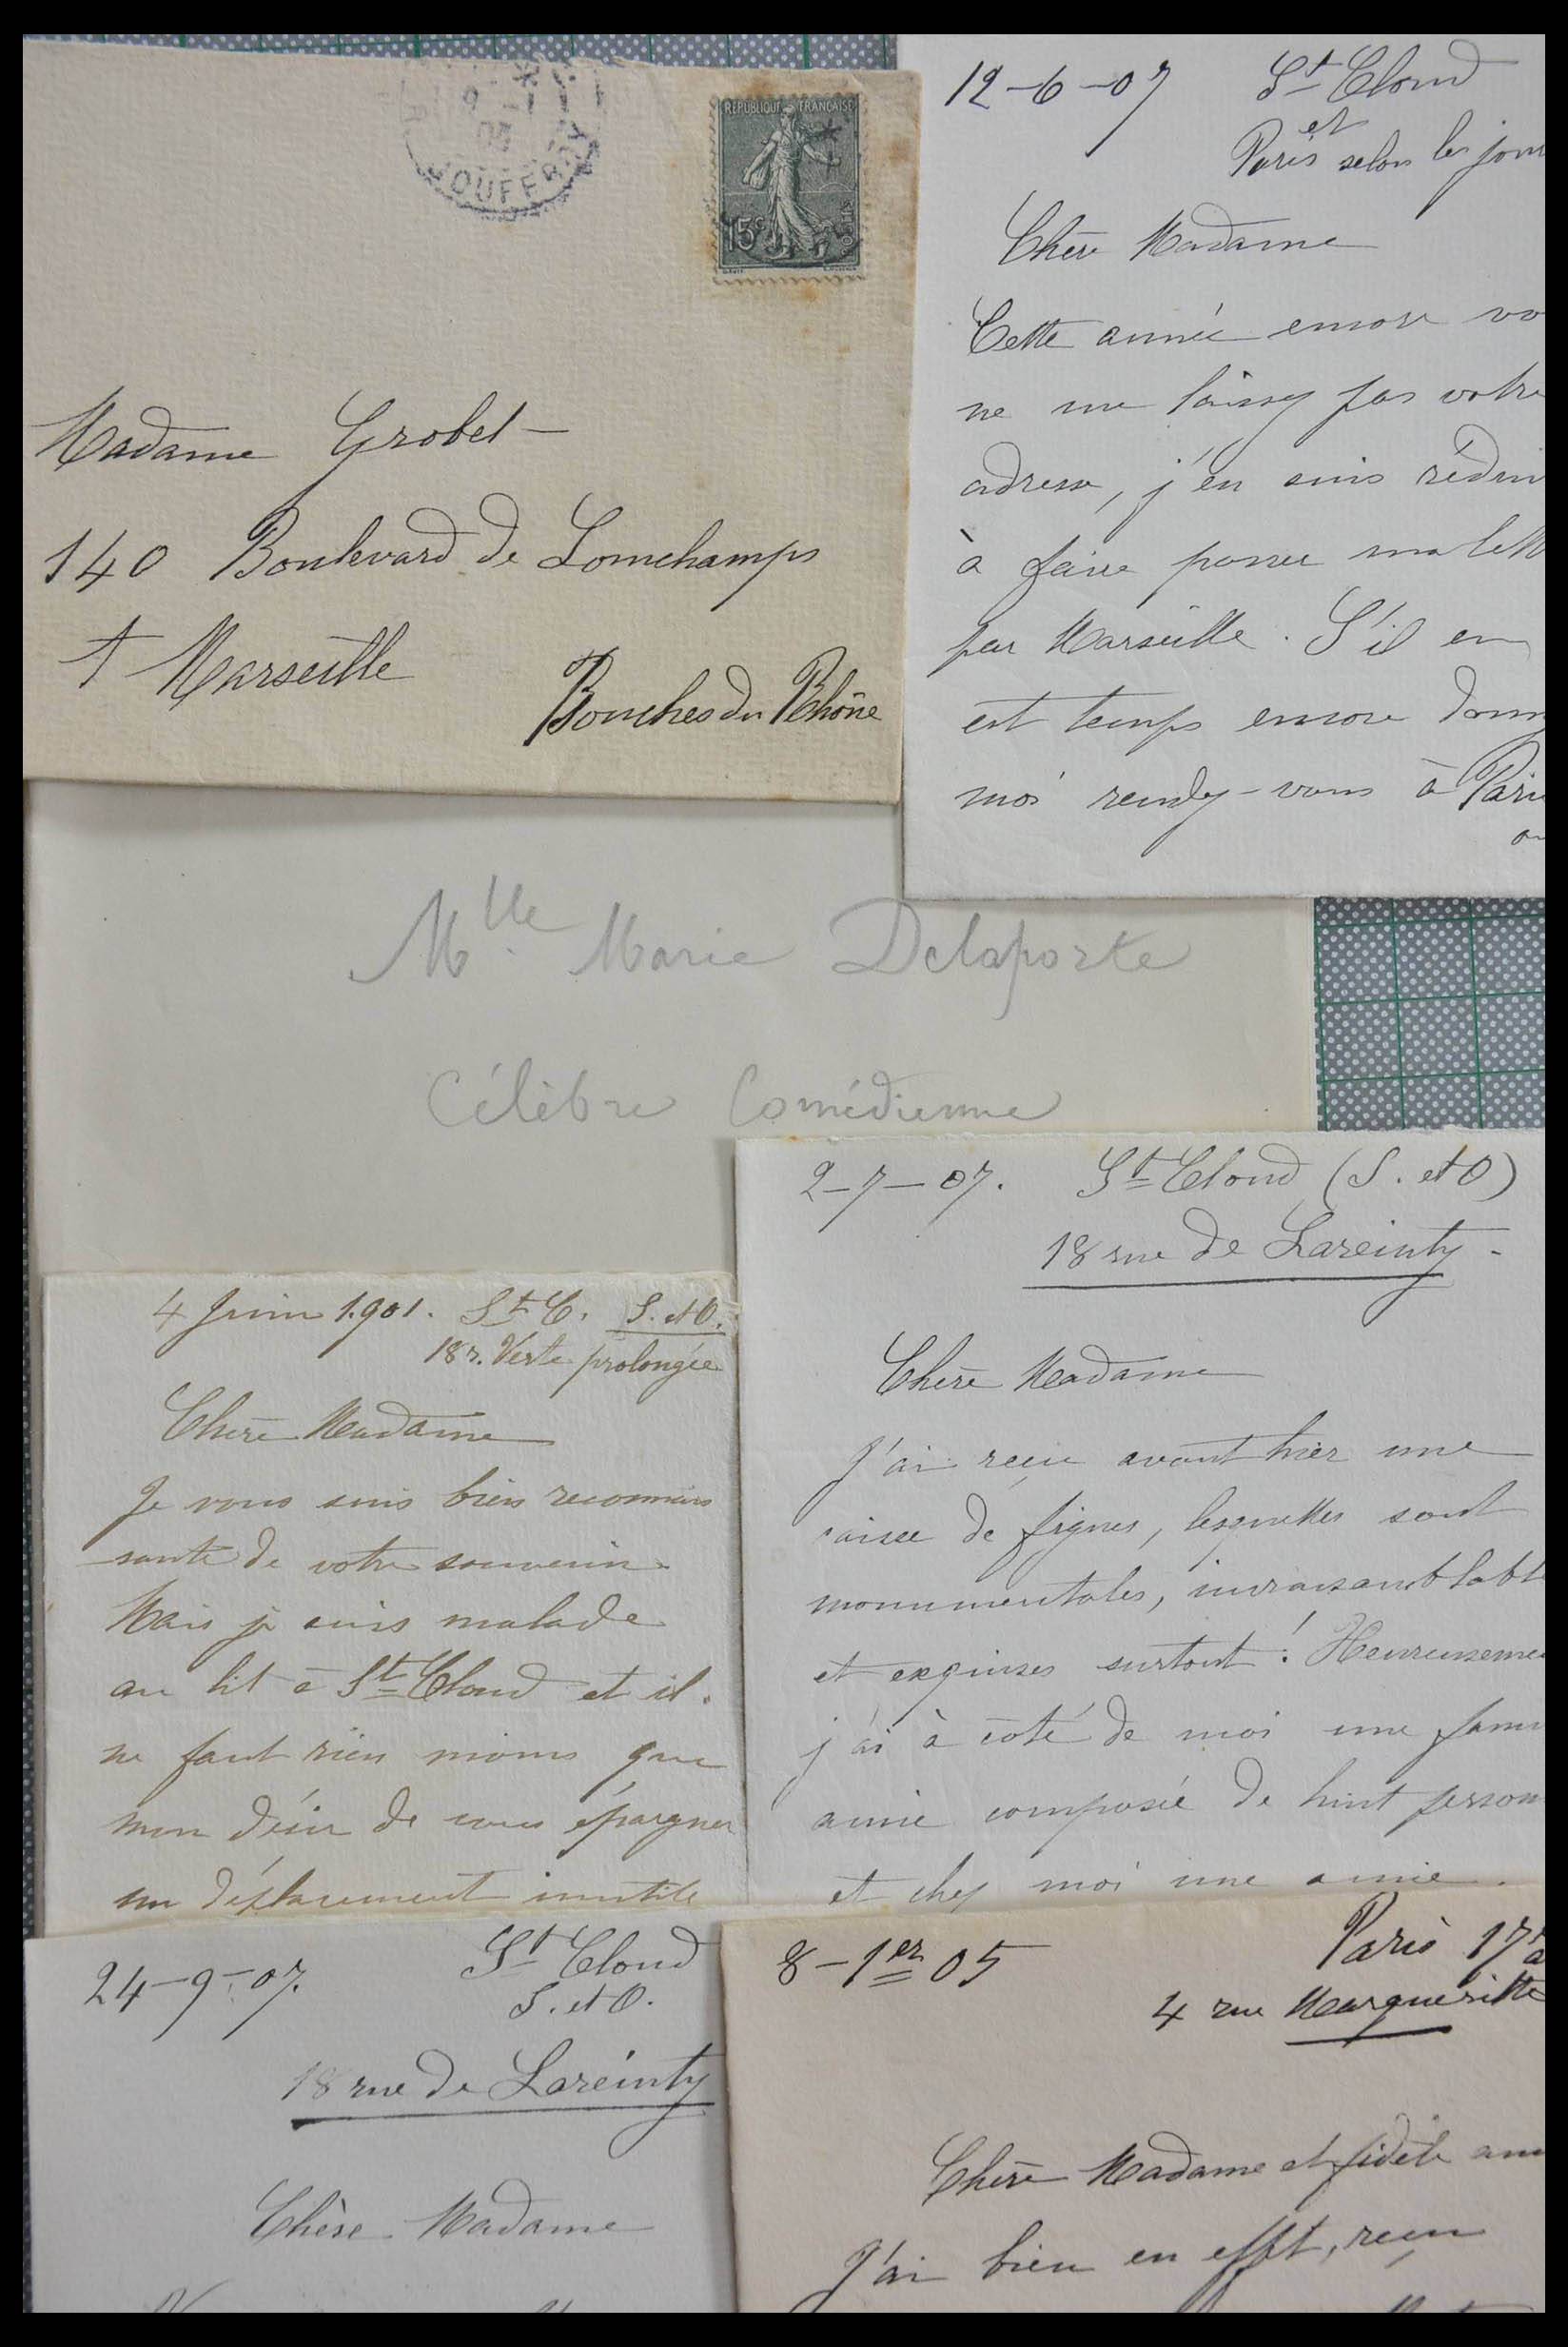 JOUFFROY
9 - 1
05
REPUBLIQUE FRANÇAISE
15c
POSTES
Madame Grobet
140 Boulevard de Lomchamps
à Marseille
Bouches du Rhône
12-6-07 St Cloud
et
Paris selon les jour
Chère Madame
Cette année encore vo
ne me laissez pas votre
adresse, j'en suis rédui
à faire passer ma lett
par Marseille. S'il en
est temps encore donnez
moi rendez-vous à Paris
ou
Mlle Marie Delaporte
Célèbre Comédienne
2-7-07. St Cloud (S. et O)
18 rue de Lareinty -
Chère Madame
J'ai reçu avant hier une
caisse de figues, lesquelles sont
monumentales, invraisemblable
et exquises surtout ! Heureuseme
j'ai à côté de moi une fami
amie composée de huit person
et chez moi une amie.
4 Juin 1.901. St C. S. et O.
18 r. Verte prolongée
Chère Madame
Je vous suis bien reconnais
sante de votre souvenir.
Mais je suis malade
au lit à St Cloud et il
ne faut rien moins que
mon désir de vous épargner
un déplacement inutile
24-9-07. St Cloud
S. et O.
18 rue de Lareinty
Chère Madame
8-1er 05 Paris 17e
4 rue Margueritte
Chère Madame et fidèle ami
J'ai bien en effet, reçu